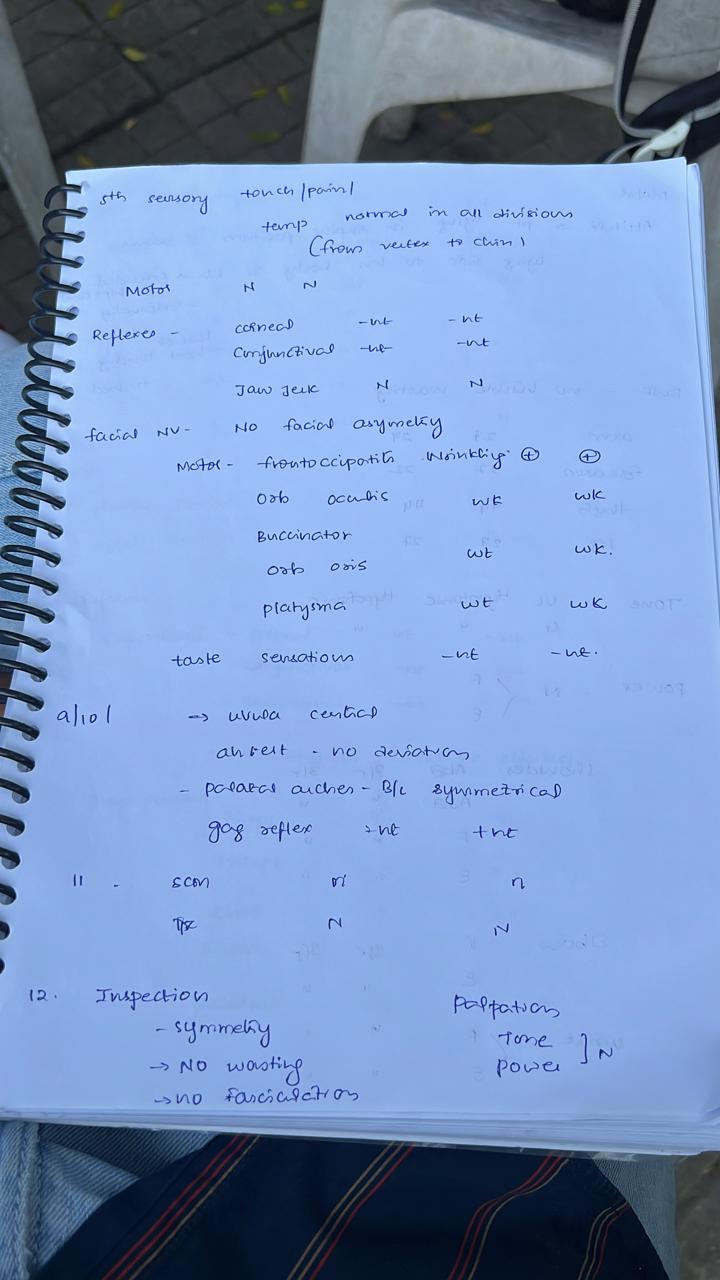 5th sensory touch/pain/
temp normal in all divisions
(from vertex to chin)
Motor N N
Reflexes - corneal -nt -nt
conjunctival -nt -nt
Jaw Jerk N N
facial NV- NO facial asymetry
Motor - frontoccipatits Wrinkling ⊕ ⊕
Orb oculis wk wk
Buccinator
orb oris wt wk.
platysma wt wk
taste sensations -nt -nt.
9/10/ → uvula central
at rest - no deviation
- palatal arches - B/L symmetrical
gag reflex +nt
11 - SCM n
Tpz N N
12. Inspection Palpation
- symmetry Tone
→ NO wasting power ] N
→ no fasciculation